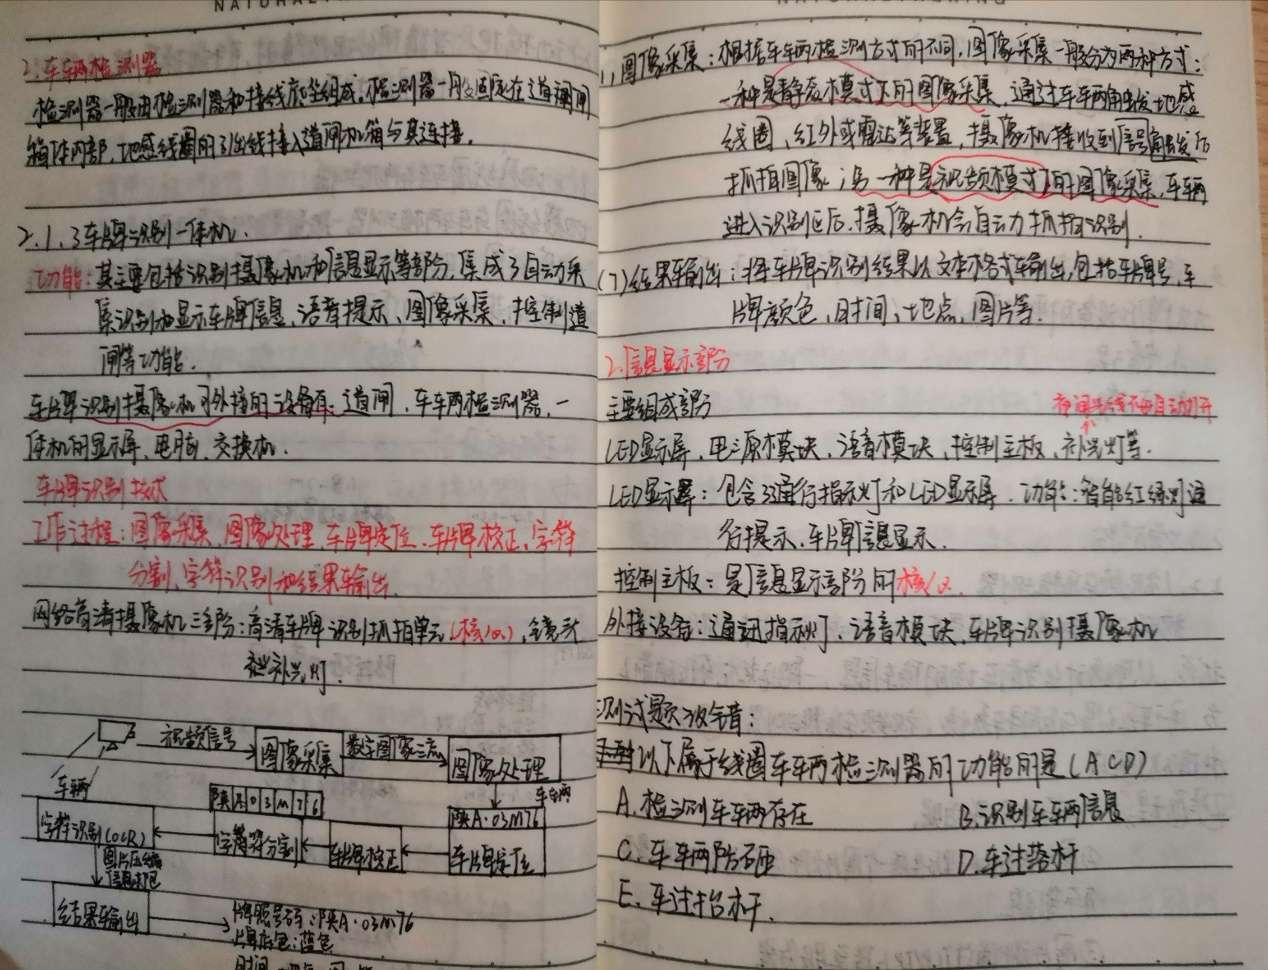 2.车辆检测器
检测器一般由检测器和接线底座组成,检测器一般固定在道闸闸
箱体内部,地感线圈的引出线接入道闸机箱与其连接。
2.1.3车牌识别一体机.
功能:其主要包括识别摄像机和信息显示等部分,集成了自动采
集识别和显示车牌信息、语音提示、图像采集、控制道
闸等功能.
车牌识别摄像机可外接的设备有:道闸、车辆检测器、一
体机的显示屏、电脑、交换机.
车牌识别技术
工作过程:图像采集、图像处理、车牌定位、车牌校正、字符
分割、字符识别和结果输出.
网络高清摄像机三部分:高清车牌识别抓拍单元(核心),镜头
和补光灯.
视频信号
图像采集
数字图像流
图像处理
车辆
车辆
陕A03M76
陕A·03M76
字符识别(OCR)
字符分割
车牌校正
车牌定位
图片压缩
信息打包
结果输出
牌照号码:陕A·03M76
牌底色:蓝色
时间
NATURAL
1)图像采集:根据车辆检测方式的不同,图像采集一般分为两种方式:
一种是静态模式下的图像采集,通过车辆触发地感
线圈,红外或雷达等装置,摄像机接收到信号触发后
抓拍图像;另一种是视频模式下的图像采集,车辆
进入识别区后,摄像机会自动抓拍识别.
(7)结果输出:将车牌识别结果以文本格式输出,包括车牌号,车
牌颜色,时间,地点,图片等.
2.信息显示部分
主要组成部分
LED显示屏、电源模块、语音模块、控制主板、补光灯等.
LED显示屏:包含通行指示灯和LED显示屏.功能:智能红绿灯通
行提示、车牌信息显示.
控制主板:是信息显示部分的核心.
外接设备:通讯指示灯、语音模块、车牌识别摄像机
测试题放错:
以下属于线圈车辆检测器的功能的是(ACD)
A.检测车辆存在
B.识别车辆信息
C.车辆防砸
D.车过落杆
E.车过抬杆.